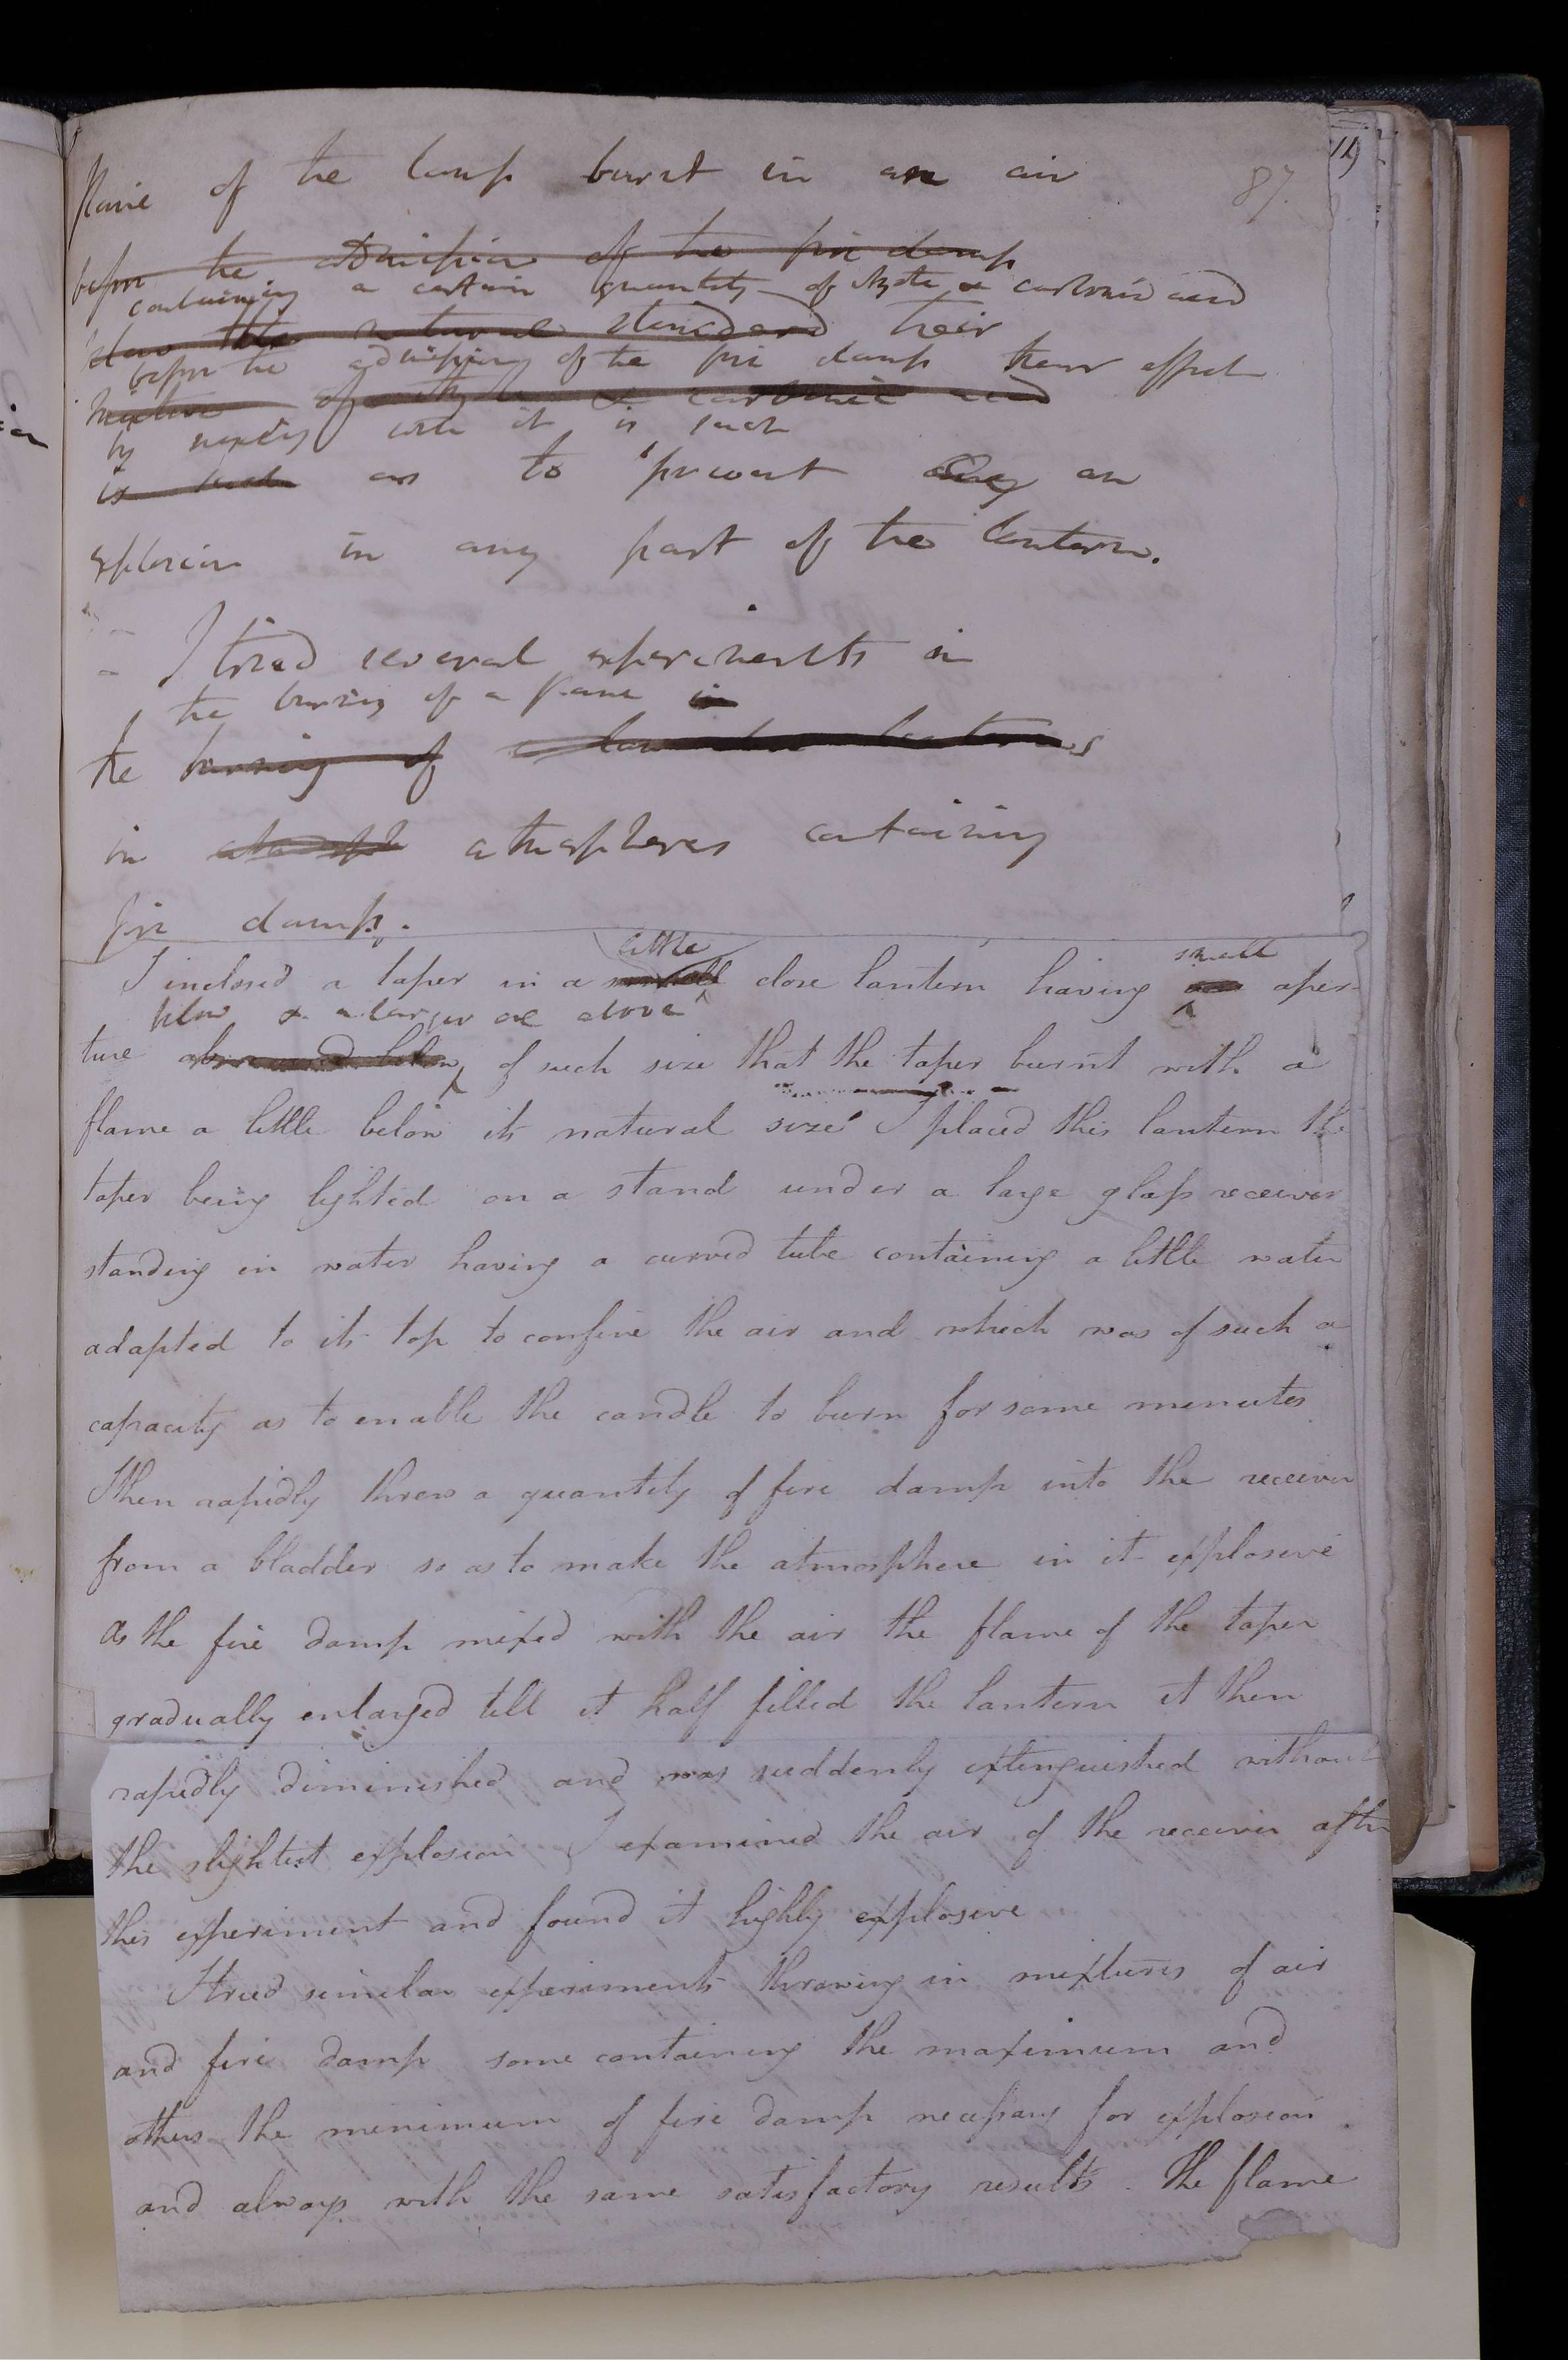 87.
flame of the lamp burnt in an air
before the admission of the fire damp
containing a certain quantity of Azote & carbonic acid
natural standard their
before the admission of the fire damp their effect
mixture of azote & carbonic acid
by mixing with it is such
is such as to prevent any an
explosion in any part of the lantern.
I tried several experiments in
the burning of a flame in
the burning of
in atmosph atmospheres containing
fire damp.
little small
I inclosed a taper in a small close lantern having aper-
below & a larger one above
ture above and below of such size that the taper burnt with a
flame a little below its natural size I placed this lantern the
taper being lighted on a stand under a large glass receiver
standing in water having a curved tube containing a little water
adapted to its top to confine the air and which was of such a
capacity as to enable the candle to burn for some minutes
I then rapidly threw a quantity of fire damp into the receiver
from a bladder so as to make the atmosphere in it explosive
As the fire damp mixed with the air the flame of the taper
gradually enlarged till it half filled the lantern it then
rapidly diminished and was suddenly extinguished without
the slightest explosion I examined the air of the receiver after
this experiment and found it highly explosive
I tried similar experiments throwing in mixtures of air
and fire damp some containing the maximum and
others the minimum of fire damp necessary for explosion
and always with the same satisfactory results. The flame